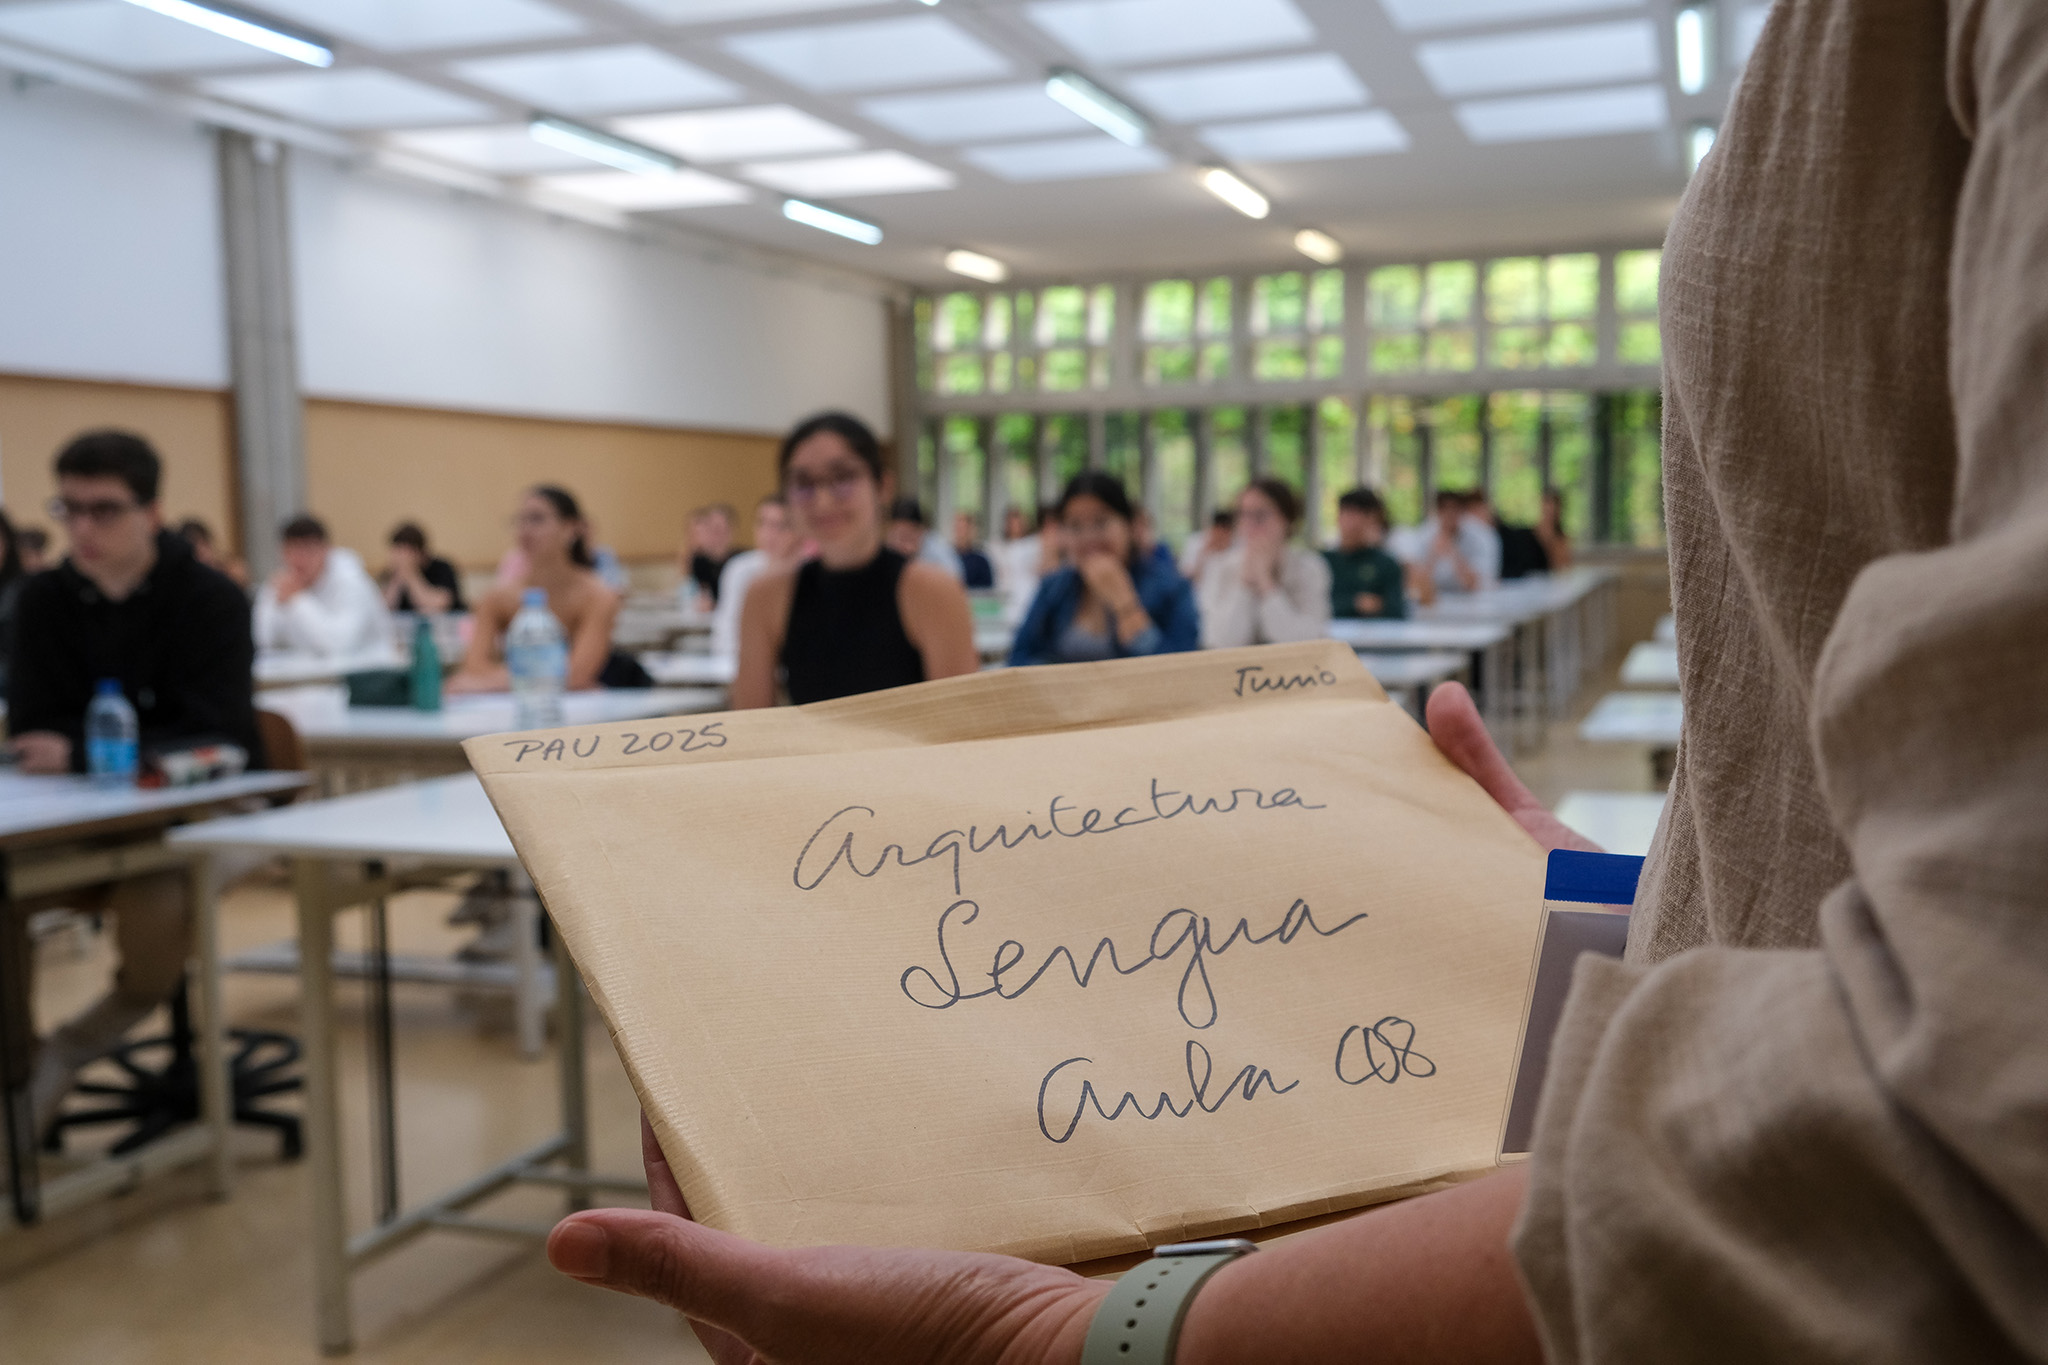 PAU 2025 Junio
Arquitectura
Lengua
Aula C08